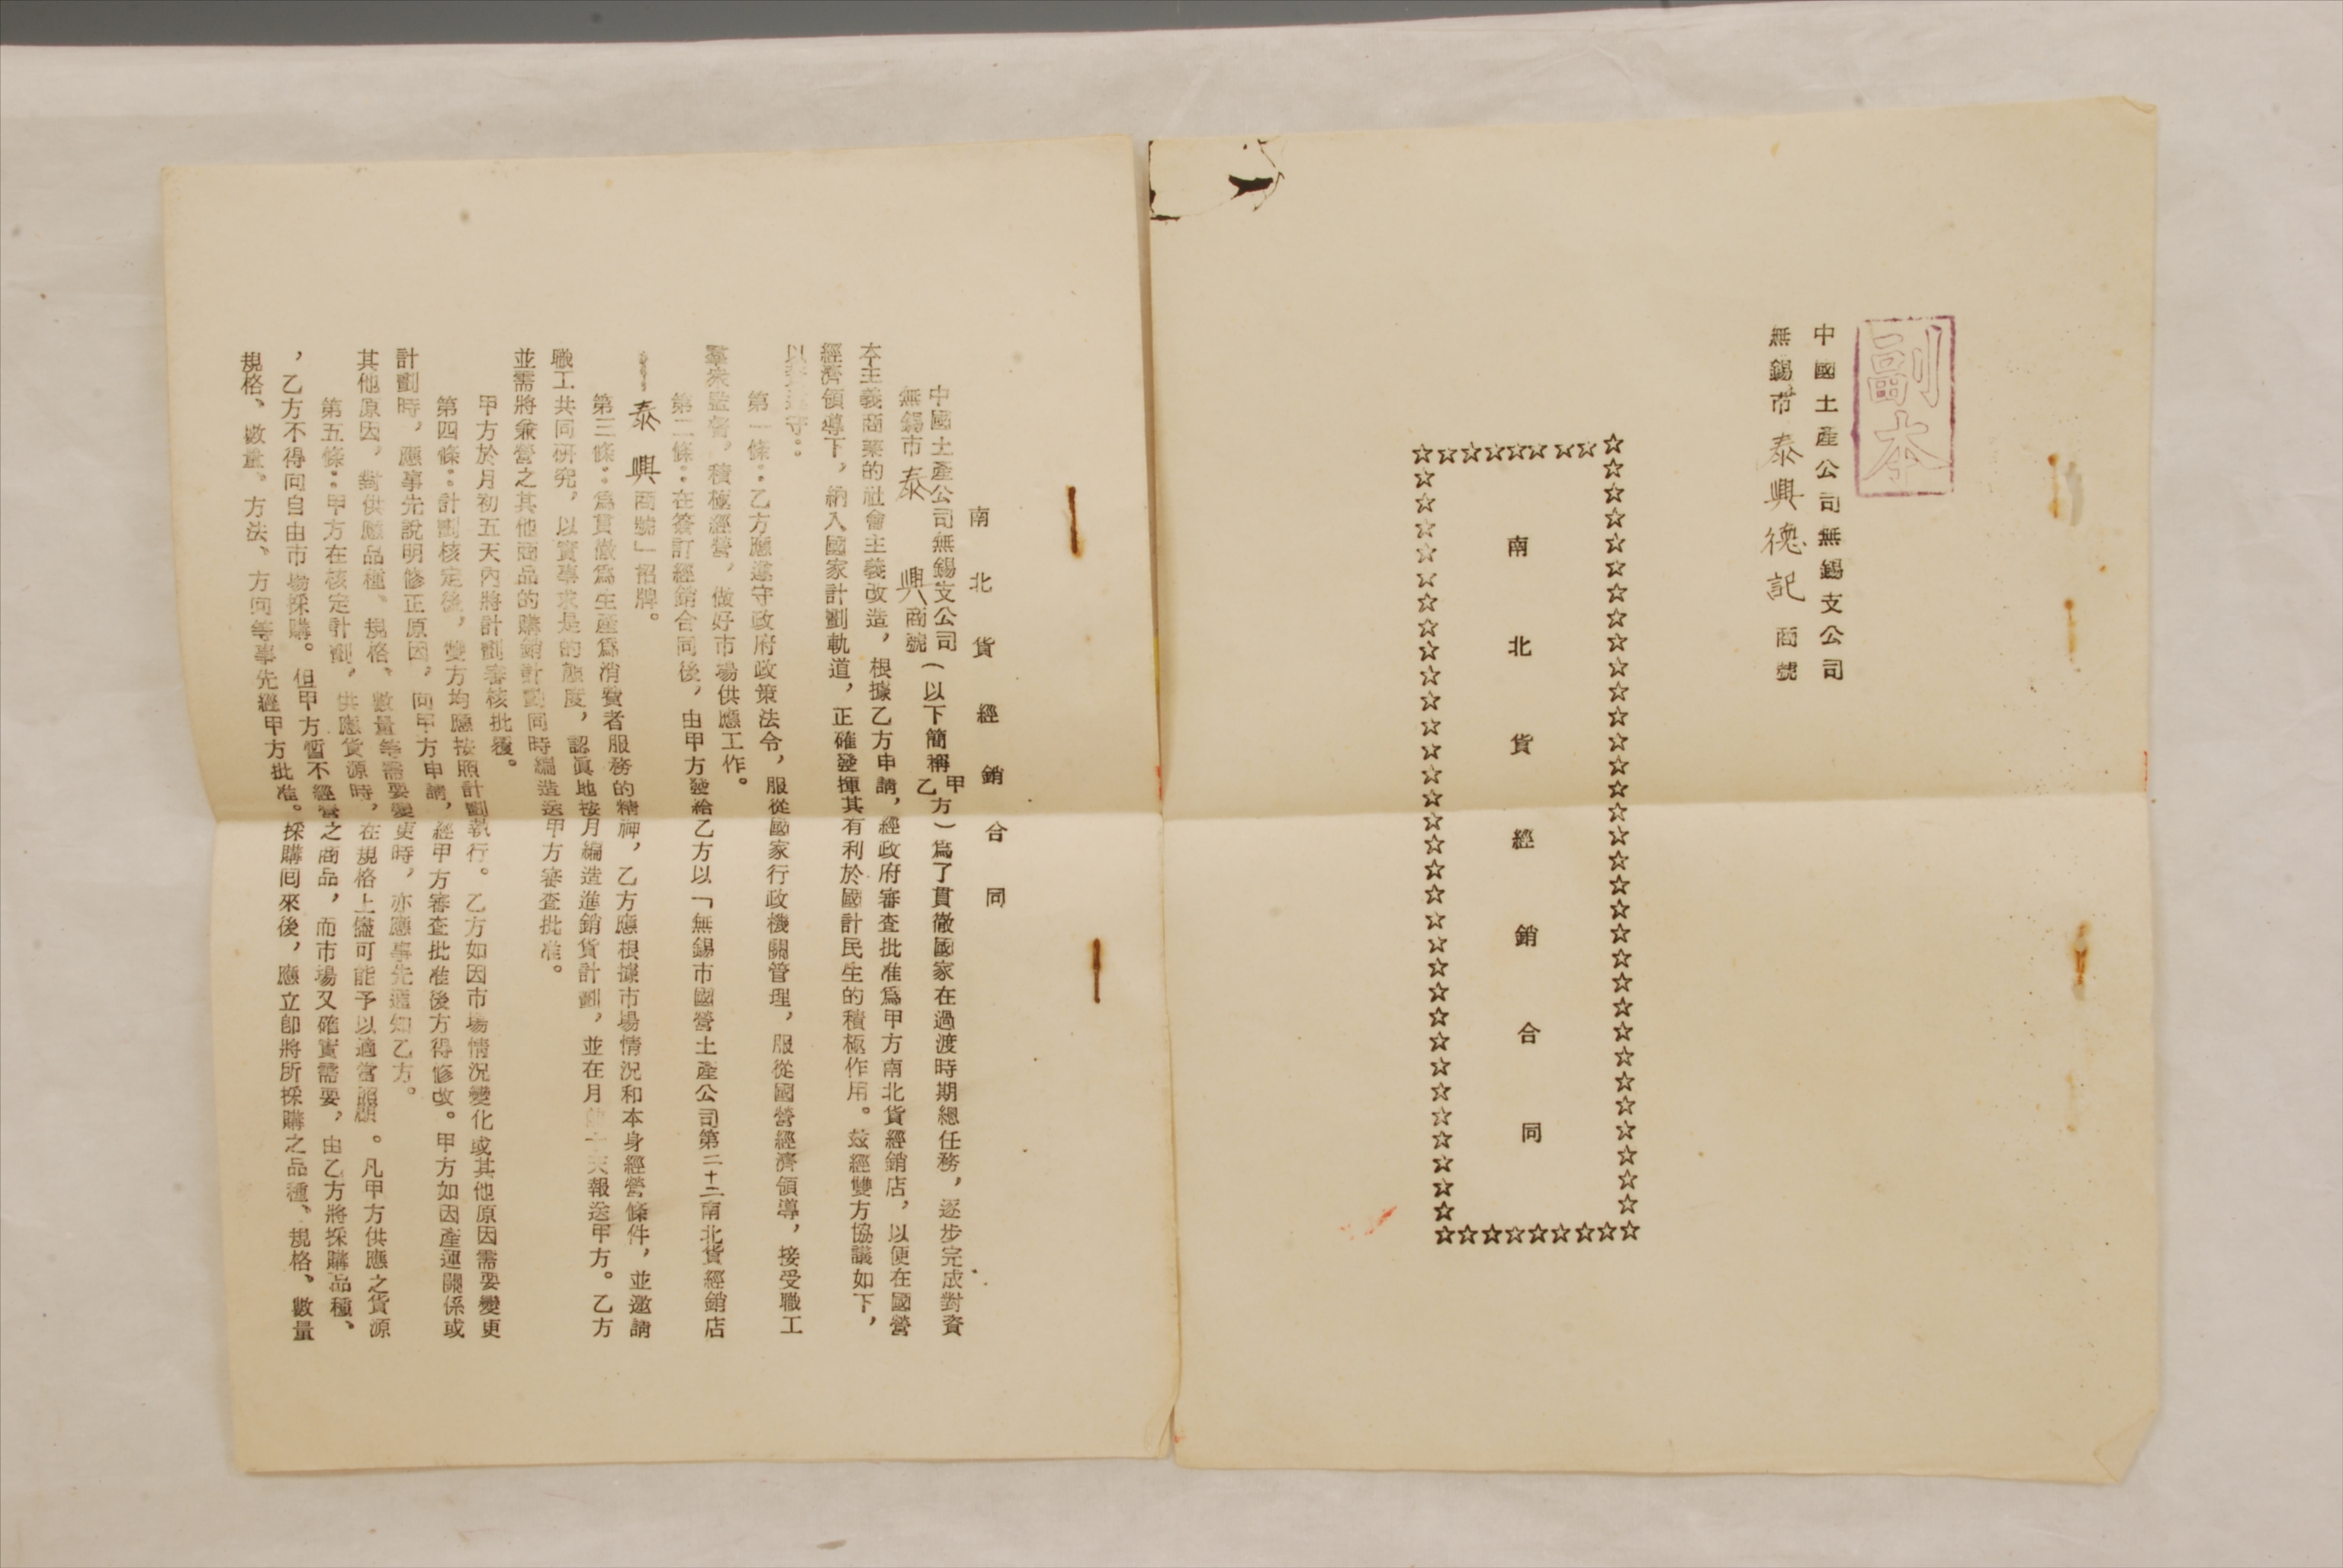 副本
中國土產公司無錫支公司
無錫市泰興德記商號
南北貨經銷合同
南北貨經銷合同
中國土產公司無錫支公司
無錫市泰興商號
(以下簡稱甲乙方)為了貫徹國家在過渡時期總任務,逐步完成對資
本主義商業的社會主義改造,根據乙方申請,經政府審查批准為甲方南北貨經銷店,以便在國營
經濟領導下,納入國家計劃軌道,正確發揮其有利於國計民生的積極作用。茲經雙方協議如下,
以資遵守:
第一條:乙方應遵守政府政策法令,服從國家行政機關管理,服從國營經濟領導,接受職工
羣眾監督,積極經營,做好市場供應工作。
第二條:在簽訂經銷合同後,由甲方發給乙方以「無錫市國營土產公司第二十二南北貨經銷店
泰興商號」招牌。
第三條:為貫徹為生產為消費者服務的精神,乙方應根據市場情況和本身經營條件,並邀請
職工共同研究,以實事求是的態度,認眞地按月編造進銷貨計劃,並在月天報送甲方。乙方
並需將兼營之其他商品的購銷計劃同時編造送甲方審查批准。
甲方於月初五天內將計劃審核批覆。
第四條:計劃核定後,雙方均應按照計劃執行。乙方如因市場情況變化或其他原因需要變更
計劃時,應事先說明修正原因,向甲方申請,經甲方審查批准後方得修改。甲方如因產運關係或
其他原因,對供應品種、規格、數量等需要變更時,亦應事先通知乙方。
第五條:甲方在核定計劃,供應貨源時,在規格上儘可能予以適當照顧。凡甲方供應之貨源
,乙方不得向自由市場採購。但甲方暫不經營之商品,而市場又確實需要,由乙方將採購品種、
規格、數量、方法、方向等事先經甲方批准。採購回來後,應立卽將所採購之品種、規格、數量